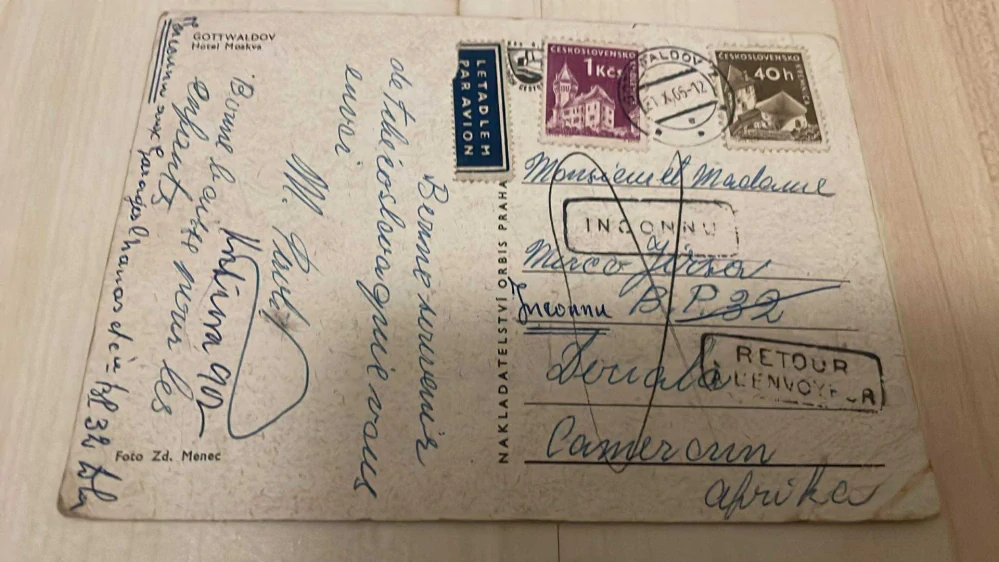 GOTTWALDOV
Hotel Moskva
Bonne souvenir
de tchécoslovaquie vous
envoi
M. Pavel
Bonne la bises pour les
enfants
Inconnu aux garages
BP 32 Dla
Foto Zd. Menec
NAKLADATELSTVÍ ORBIS PRAHA
LETADLEM
PAR AVION
ČESKOSLOVENSKO
1 Kčs
ČESKOSLOVENSKO
40 h
21.X.65-12
Monsieur et Madame
INCONNU
Merco Jirsa
Inconnu B.P. 32
Douala
RETOUR
A L'ENVOYEUR
Cameroun
Afrika